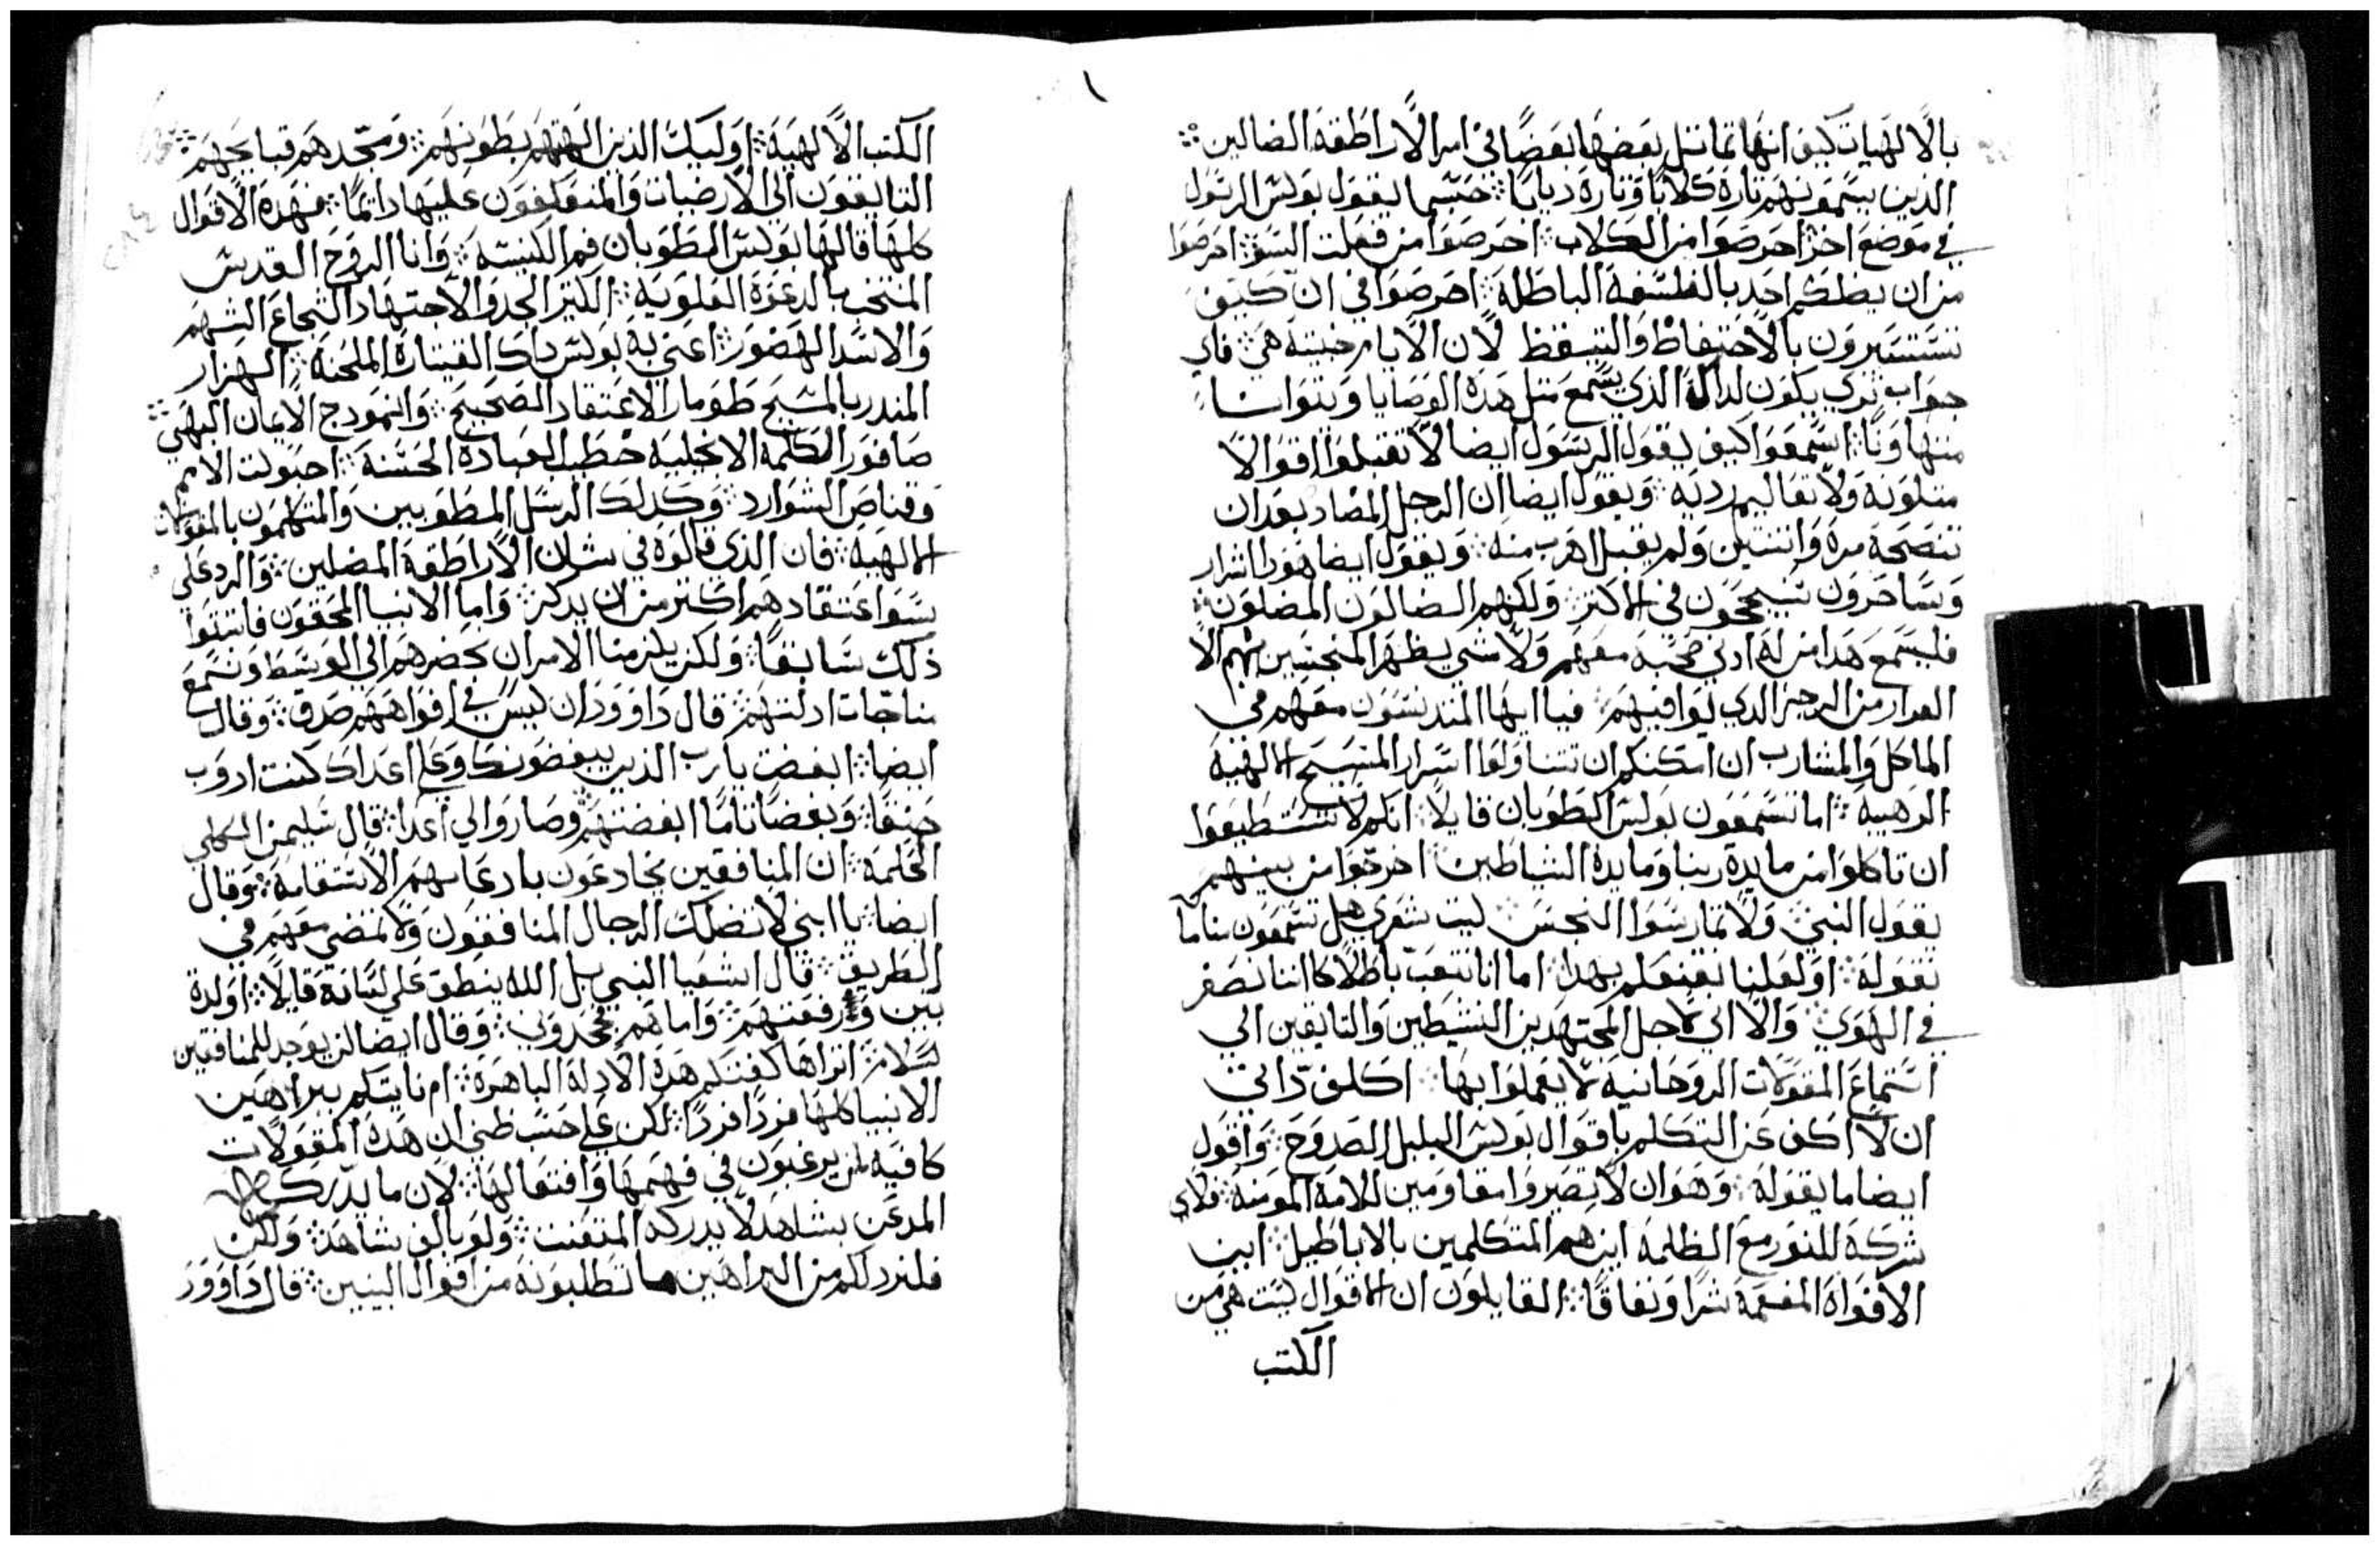 بالالهيات كيف انها تماثل بعضها بعضًا في امر الاراطقة الضالين
الذين يسمونهم تارة كلابًا وتارة ديابًا حسبما يقول بولس الرسول
في موضع اخر احرصوا من الكلاب احرصوا من فعلت السو احرصوا
من ان يضلكم احد بالفلسفة الباطلة احرصوا في ان كيف
تستسيرون بالاحتفاظ والتيقظ لان الايام خبيثة هي فاي
جواب ترى يكون لداك الذي يسمع مثل هذه الوصايا ويتوانا
متهاونًا اسمعوا كيف يقول الرسول ايضا لا تقبلوا اقوالا
متلونة ولا تعاليم ردية ويقول ايضا ان الرجل المضاد بعد ان
تنصحة مرة واثنتين ولم يقبل اهرب منه ويقول ايضا هودا اشرار
وساحرون سيجحون في الاكثر ولكنهم الضالون المضلون
فليسمع هدا من له ادنى صحبة معهم ولا شي يظهر المنجسين منهم الا
الفرار من الرجز الدي يوافيهم فيا ايها المتدنسون معهم في
الماكل والمشارب ان امكنكم ان تتناولوا اسرار المسيح الالهية
الرهيبة اما تسمعون بولس الطوبان قايلا انكم لا تستطيعوا
ان تاكلوا من مايدة ربنا ومايدة الشياطين اخرجوا من بينهم
يقول النبي ولا تمارسوا النجس ليت شعري هل تسمعون منا ما
نقولة او لعلنا نفنعلم بهدا اما انا نتعب باطلا كاننا نصفر
في الهوى والا اني لاجل المجتهدين النشيطين والتايقين الى
استماع المقولات الروحانية لا يعملوا بها اكلف داتي
ان لا اكف عن التكلم باقوال بولس البلبل الصدوح واقول
ايضا ما يقولة وهو ان لا تصيروا مقاومين للامة المومنة فلاي
شركة للنور مع الظلمة اين هم المتكلمين بالاباطيل اين
الافواه المفعمة شرًا ونفاقًا القايلون ان الاقوال ليست هي من
الكتب
الكتب الالهية اوليك الذين الههم بطونهم ومجدهم قبايحهم
التايقون الى الارضيات والمتعكفون عليها دايمًا فهذه الاقوال
كلها قالها بولس الطوبان فم الكنيسة وانا الروح القدس
المنتخب بالدعوة العلوية الكثير الجد والاجتهاد الشجاع الشهم
والاسد الهصور اعني به بولس داك القيتارة الملحنة الهزار
المندر بالمسيح طومار الاعتقاد الصحيح والنمودج الايمان البهي
صافور الكلمة الانجيلية خطيب العبادة الحسنة احبولت الامم
وقناص الشوارد وكدلك الرسل المطوبين والمتكلمون بالمقولات
الالهية فان الذي قالوه في شان الاراطقة المضلين والرد على
سو اعتقادهم اكثر من ان يدكر واما الانبيا المحقون فانبتوا
ذلك سابقًا ولكن يلزمنا الامر ان نحضرهم الى الوسط ونسمع
مناجات ادلتهم قال داوود ان ليس في افواههم صدق وقال
ايضا ابغضت يا رب الذين يبغضونك وعلى اعداك كنت ادوب
حنقًا وبغضًا تامًا ابغضتهم وصاروا لي اعدا قال سليمن الكلي
الحكمة ان المنافقين يخادعون بادعايهم الاستقامة وقال
ايضا يا ابني لا تضلك الرجال المنافقون ولا تمضي معهم في
الطريق قال اشعيا النبي بل الله ينطق على لسانه قايلا اولدة
بنين ورفعتهم واما هم فجحدوني وقال ايضا لن يوجد للمنافقين
سلام اتراها كفتكم هذه الادلة الباهرة ام ناتيكم ببراهين
الانبيا كلها فردًا فردًا لكن على حسب ظني ان هذه المقولات
كافية لمن يرغبون في فهمها وافتعالها لان ما يدركه
المدعن بشاهد لا يدركه المتعنت ولو بالف شاهد ولكن
فلنزدكم من البراهين ما تطلبونة من اقوال النبيين قال داوود